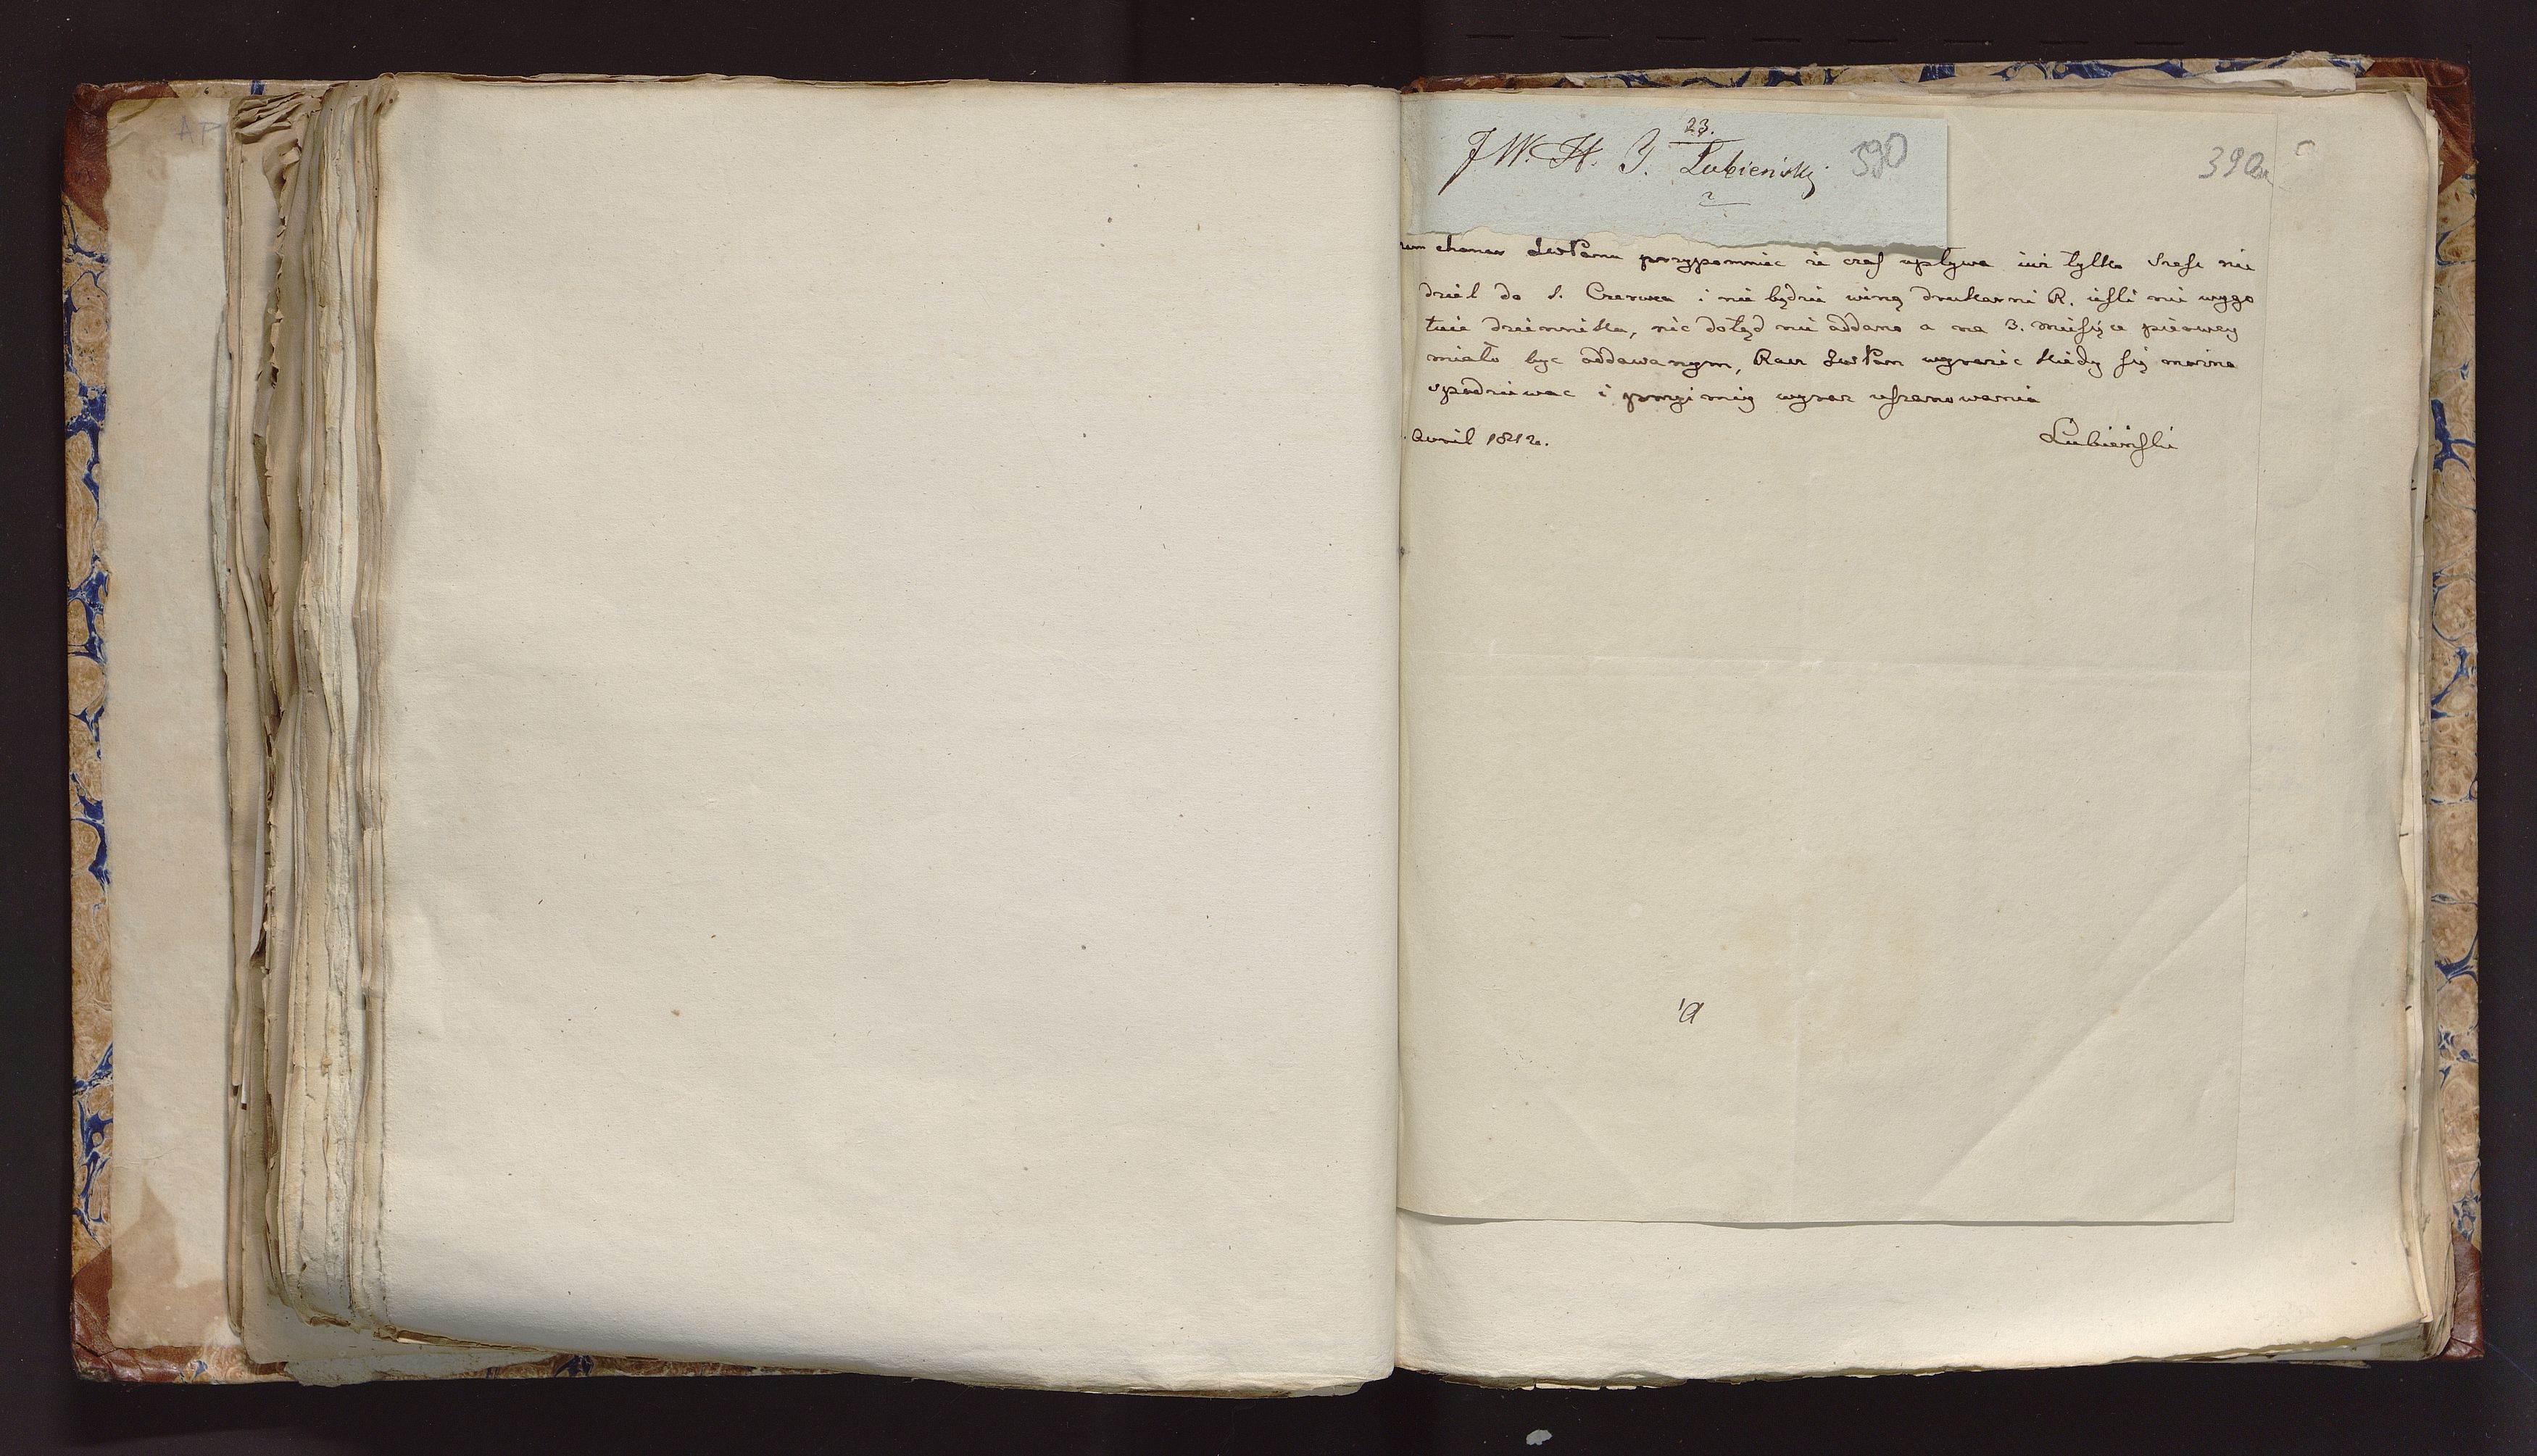 23.
J W. H. J. Łubieński 390
390a
honor JWPanu przypomniec że czas upływa iuż tylko sześć nie
dziel do 1. Czerwca i nie będzie winą drukarni R. iesli nie wygo
tuie dziennika, nic dotąd nie oddano a na 3. miesiące pierwey
miało byc oddawanym, Racz JWPan wyrazic kiedy się można
spodziewac i przyimiy wyraz uszanowania
Avril 1812.
Łubieński
a